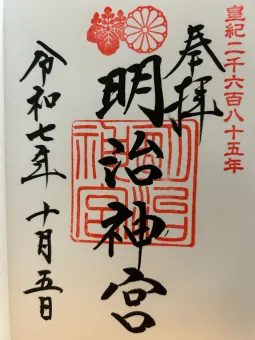 皇紀二千六百八十五年
奉拝
明治神宮
明治神宮
令和七年十月五日